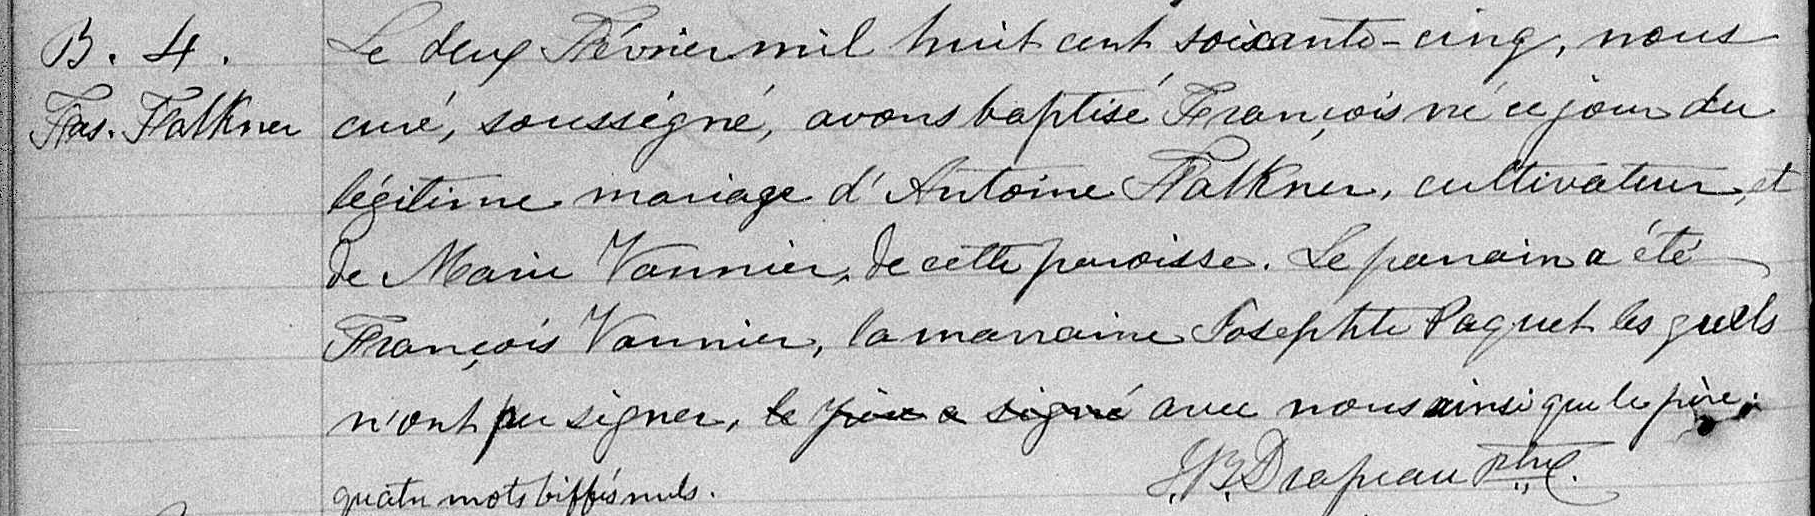 B. 4.
Fas. Falkner
Le deux Février mil huit cent soixante-cinq, nous
curé, soussigné, avons baptisé François né ce jour du
légitime mariage d'Antoine Falkner, cultivateur, et
de Marie Vannier, de cette paroisse. Le parrain a été
François Vannier, la marraine Josephte Paquet lesquels
n'ont pu signer, le père a signé avec nous ainsi que le père.
quatre mots biffés nuls.
J.B. Drapeau Ptre.